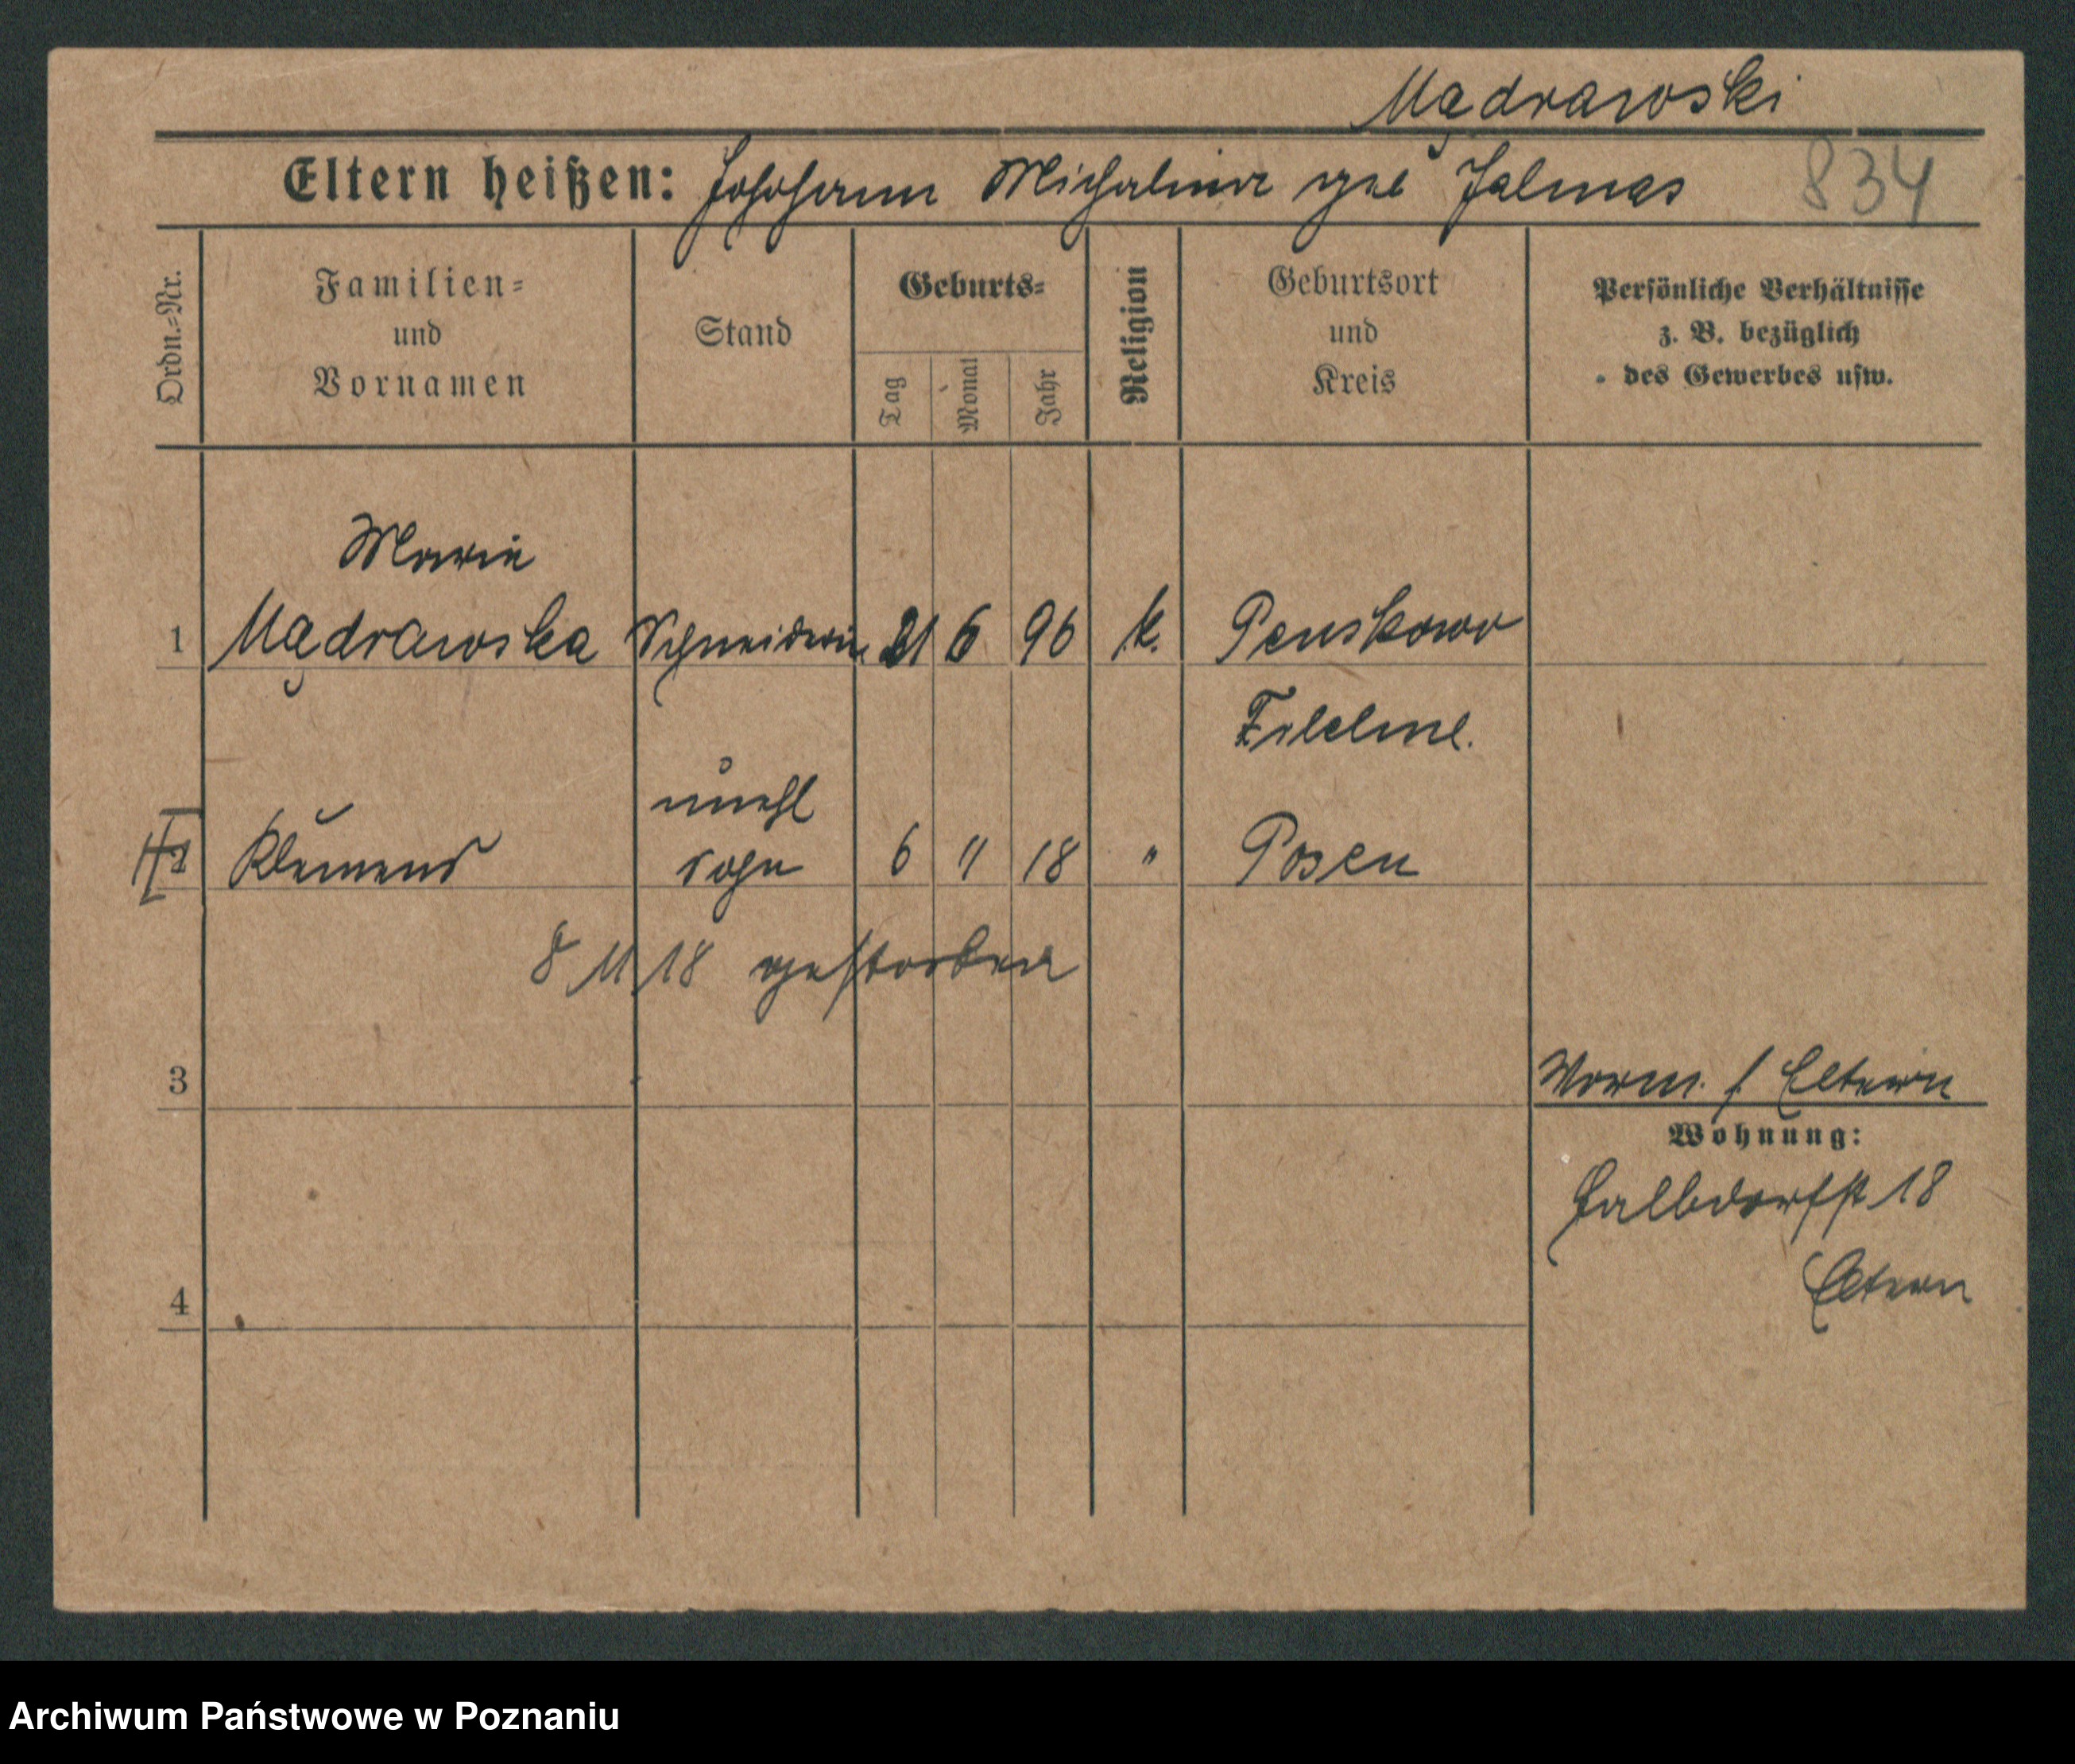 Mądrawski
Eltern heißen: Johann Michalina geb Jalmas
834
Ordn.=Nr.
Familien=
und
Vornamen
Stand
Geburts=
Tag
Monat
Jahr
Religion
Geburtsort
und
Kreis
Persönliche Verhältnisse
z. B. bezüglich
des Gewerbes usw.
Marie
1 Mądrawska Schneiderin 21 6 96 k. Penskowo
Filehne.
unehl
2 Klemens Sohn 6 11 18 " Posen
8/11 18 gestorben
3
Vorm. s Eltern
Wohnung:
Halbdorfst 18
Eltern
4
Archiwum Państwowe w Poznaniu